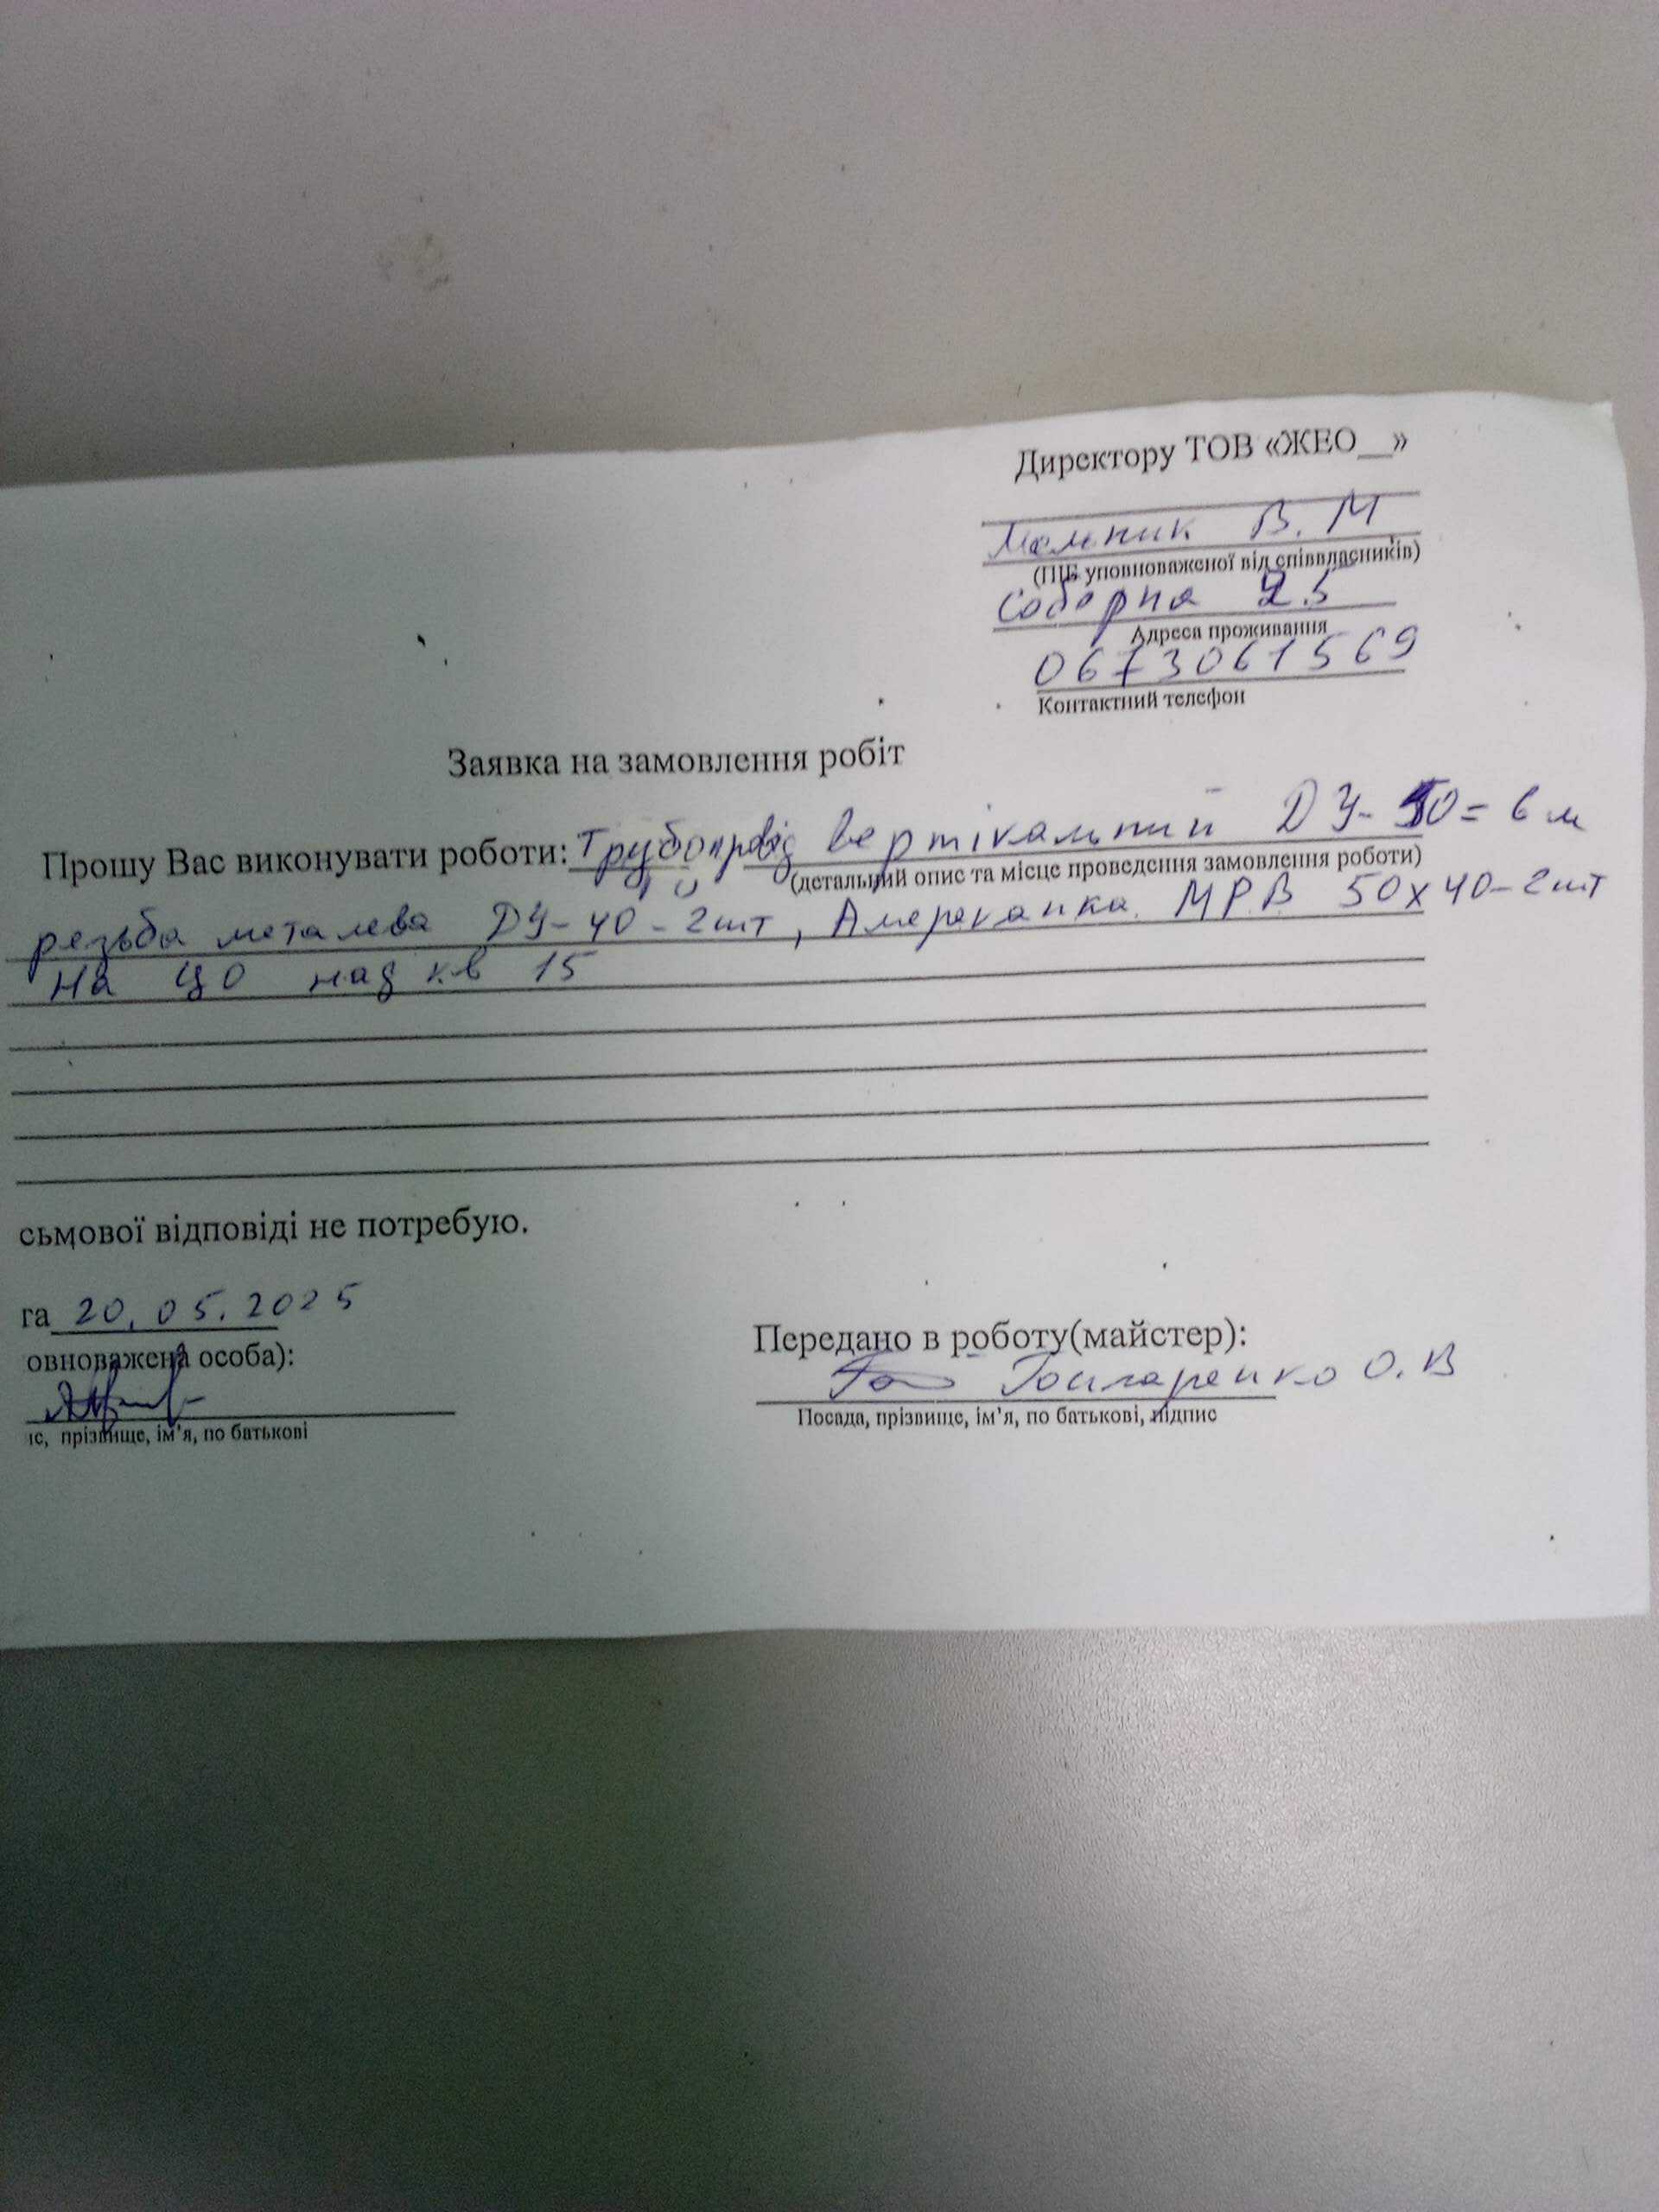 Директору ТОВ «ЖЕО__»
Мельник В. М
(ПІБ уповноваженої від співвласників)
Соборна 25
Адреса проживання
0673061569
Контактний телефон
Заявка на замовлення робіт
Прошу Вас виконувати роботи: Трубопровід вертікальний ДУ-50 = 6 м
(детальний опис та місце проведення замовлення роботи)
резьба металева ДУ-40-2шт, Амереканка МРВ 50х40-2шт
на ЦО над кв 15
сьмової відповіді не потребую.
та 20.05.2025
овноважена особа):
іс, прізвище, ім'я, по батькові
Передано в роботу(майстер):
Гончаренко О. В
Посада, прізвище, ім'я, по батькові, підпис